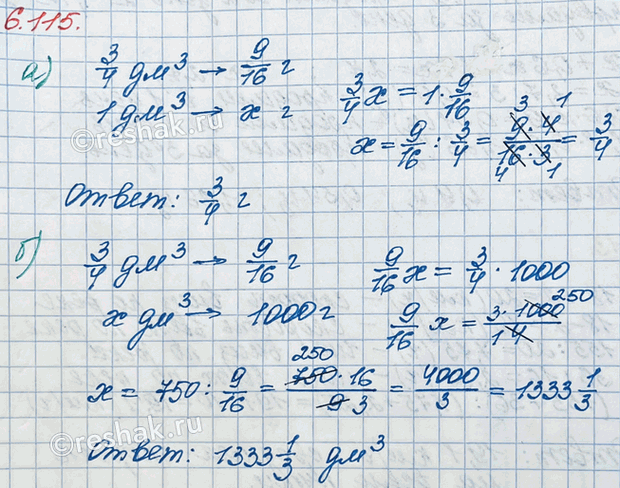 6.115.
а) 3/4 дм³ → 9/16 г
1 дм³ → x г
3/4 x = 1 · 9/16
x = 9/16 : 3/4 = (9 · 4)/(16 · 3) = 3/4
3 1
4 1
Ответ: 3/4 г
б) 3/4 дм³ → 9/16 г
x дм³ → 1000 г
9/16 x = 3/4 · 1000
9/16 x = (3 · 1000)/4
250
1
x = 750 : 9/16 = (750 · 16)/9 = 4000/3 = 1333 1/3
250
3
Ответ: 1333 1/3 дм³
©reshak.ru
©reshak.ru
©reshak.ru